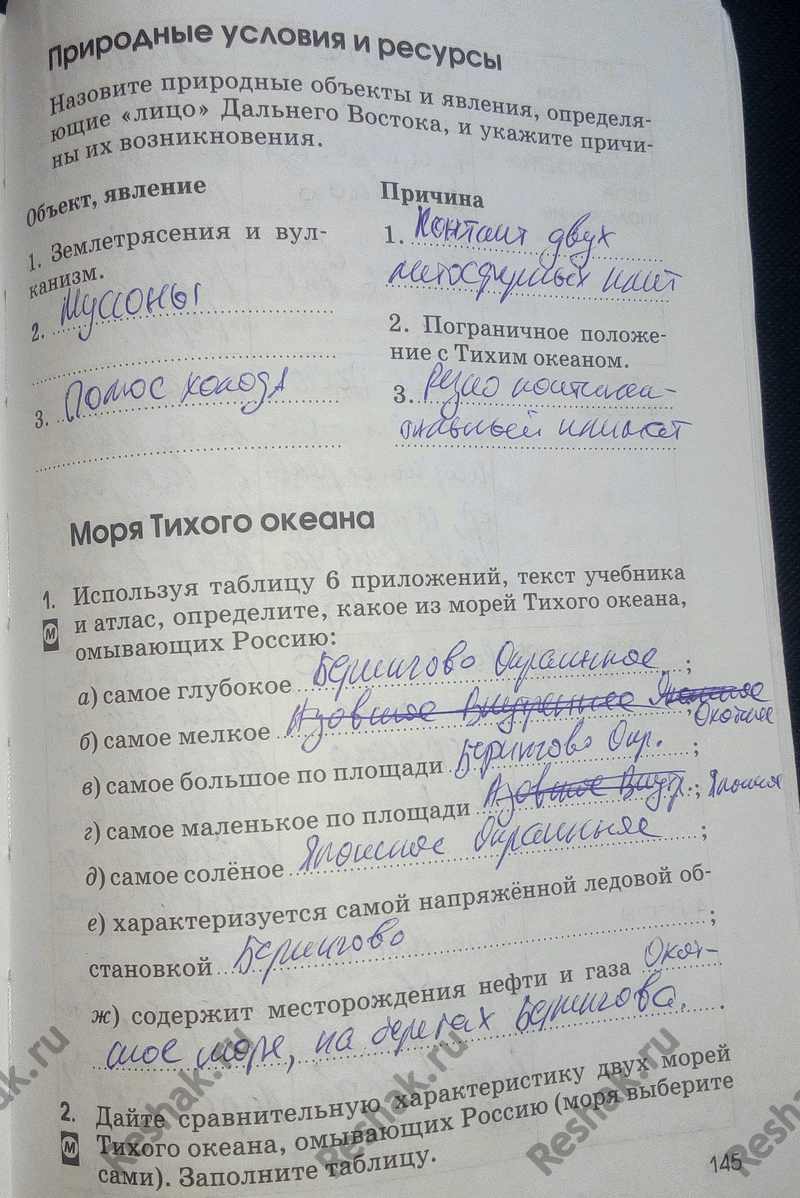 Природные условия и ресурсы
Назовите природные объекты и явления, определя-
ющие «лицо» Дальнего Востока, и укажите причи-
ны их возникновения.
Объект, явление
1. Землетрясения и вул-
канизм.
2. Муссоны
3. Полюс холода
Причина
1. Контакт двух
литосферных плит
2. Пограничное положе-
ние с Тихим океаном.
3. Резко континен-
тальный климат
Моря Тихого океана
1. Используя таблицу 6 приложений, текст учебника
М и атлас, определите, какое из морей Тихого океана,
омывающих Россию:
а) самое глубокое Берингово Окраинное ;
б) самое мелкое Азовское Внутреннее Японское ; Охотское
в) самое большое по площади Берингово Окр. ;
г) самое маленькое по площади Азовское Внутр. ; Японское
д) самое солёное Японское Окраинное ;
е) характеризуется самой напряжённой ледовой об-
становкой Берингово ;
ж) содержит месторождения нефти и газа Охот-
ское море, на берегах Берингова .
2. Дайте сравнительную характеристику двух морей
М Тихого океана, омывающих Россию (моря выберите
сами). Заполните таблицу.
145
ak.ru
Reshak.ru
Reshak.ru
Reshak.ru
Resha